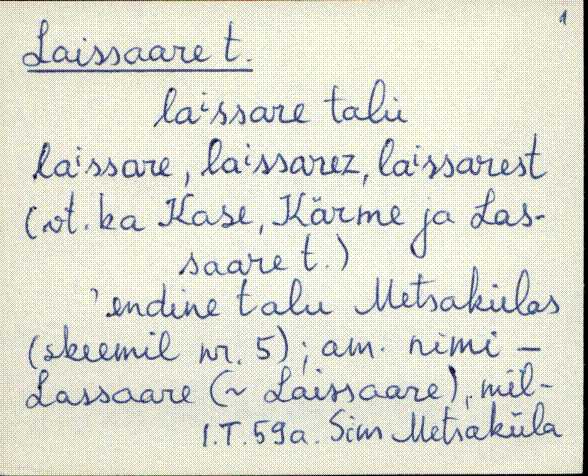 1
Laissaare t.
laissare talu
laissare, laissarez, laissarest
(vt. ka Kase, Kärme ja Las-
saare t.)
'endine talu Metsakülas
(skeemil nr. 5); am. nimi –
Lassaare (~ Laissaare), mil-
I.T. 59a. Sim Metsaküla